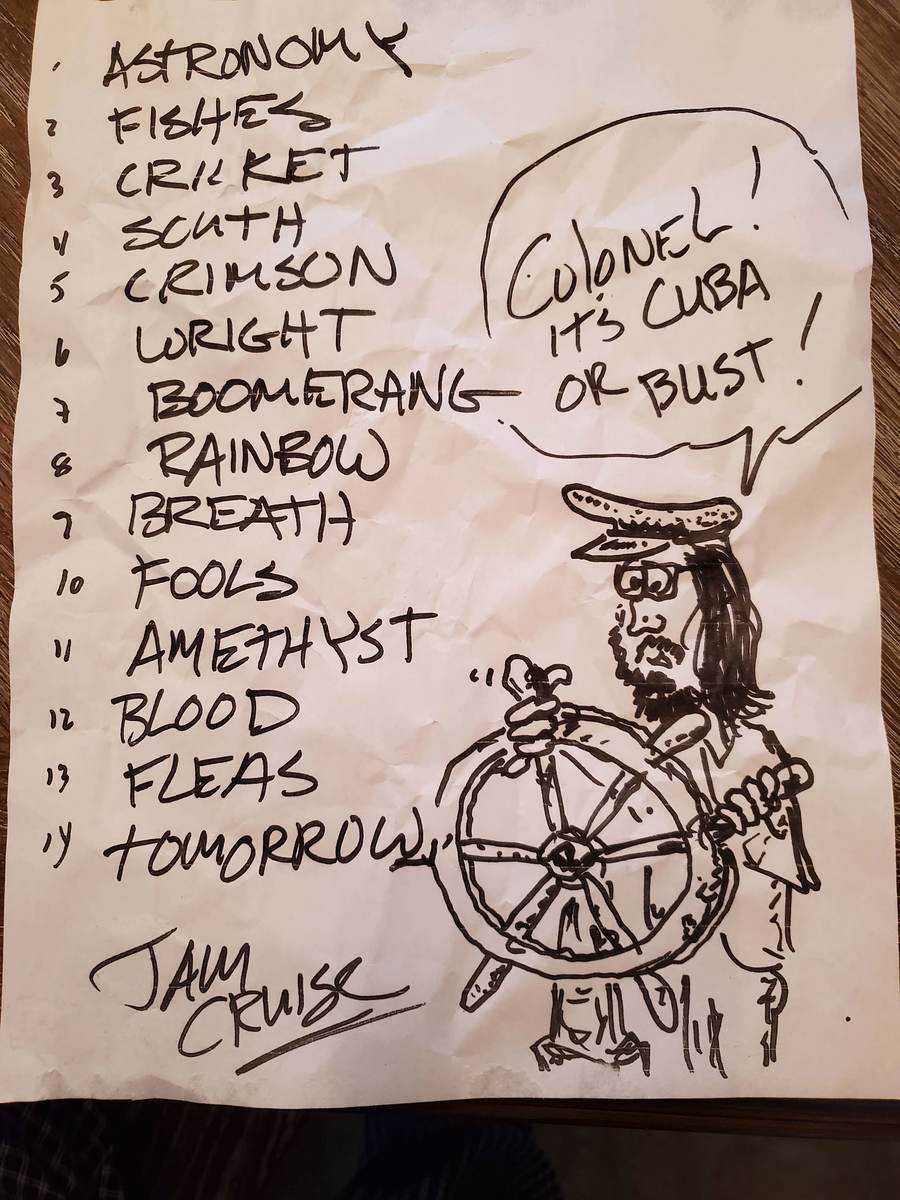 1 ASTRONOMY
2 FISHES
3 CRICKET
4 SOUTH
5 CRIMSON
6 WRIGHT
7 BOOMERANG
8 RAINBOW
9 BREATH
10 FOOLS
11 AMETHYST
12 BLOOD
13 FLEAS
14 TOMORROW
COLONEL!
IT'S CUBA
OR BUST!
JAM
CRUISE